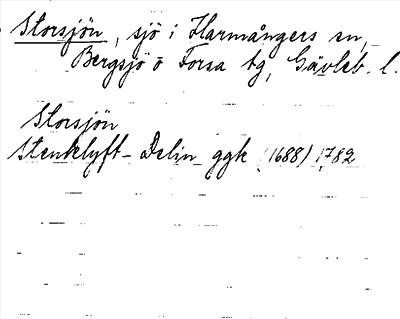 Storsjön, sjö i Harmångers sn,
Bergsjö o Forsa tg, Gävleb. l.
Storsjön
Stenklyft- Delin ggk (1688) 1782